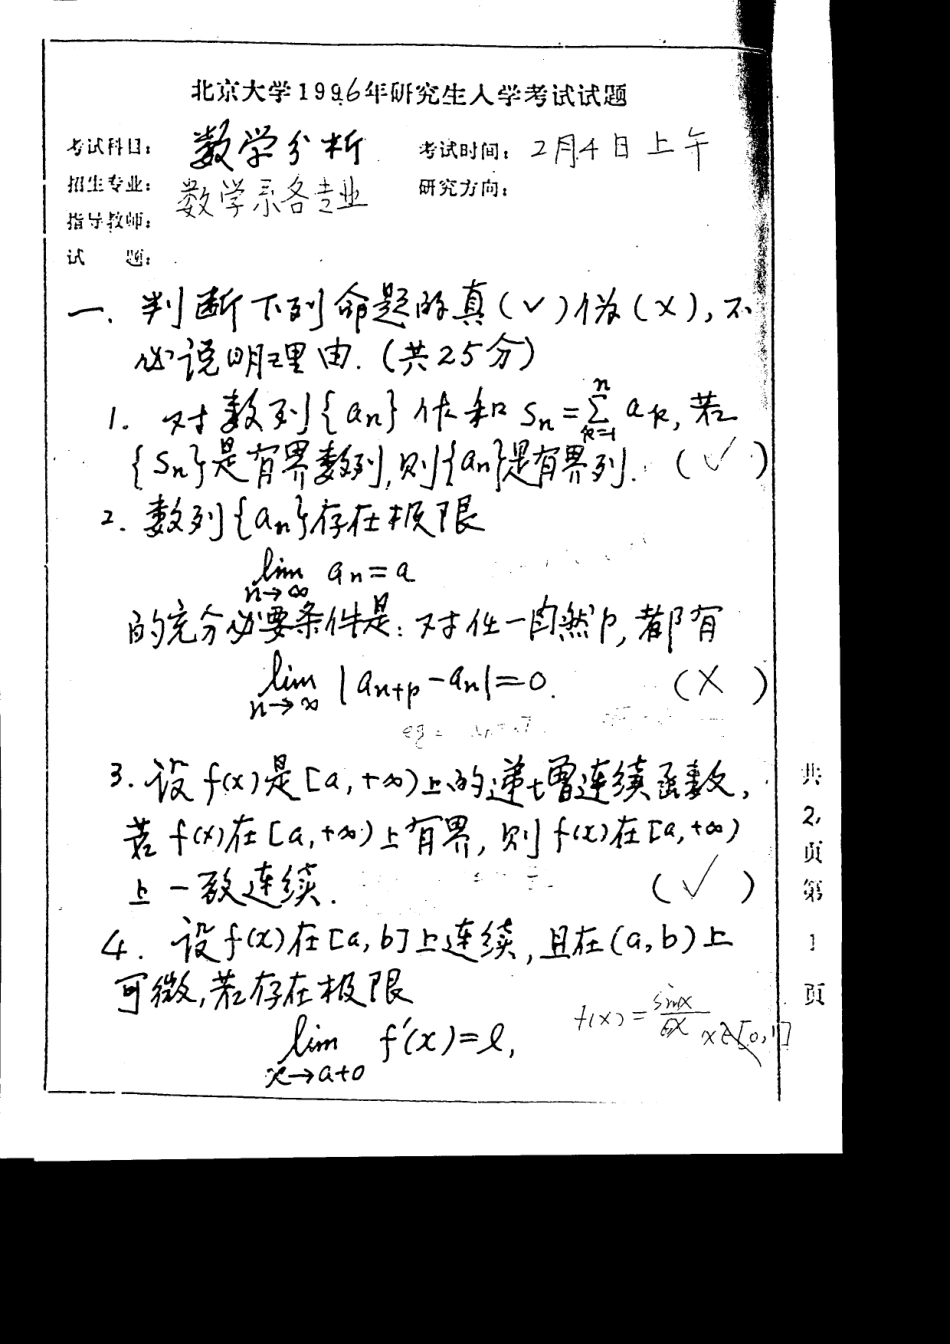 北京大学1996年研究生入学考试试题
考试科目: 数学分析 考试时间: 2月4日上午
招生专业: 数学系各专业 研究方向:
指导教师:
试 题:
一、判断下列命题的真(√)伪(×),不
必说明理由.(共25分)
1. 对数列{an}作和 Sn=∑_{k=1}^{n} ak,若
{Sn}是有界数列,则{an}是有界列. (√)
2. 数列{an}存在极限
lim_{n→∞} an=a
的充分必要条件是:对任一自然p,都有
lim_{n→∞} |an+p-an|=0. (×)
3. 设f(x)是[a,+∞)上的递增连续函数,
若f(x)在[a,+∞)上有界,则f(x)在[a,+∞)
上一致连续. (√)
4. 设f(x)在[a,b]上连续,且在(a,b)上
可微,若存在极限
lim_{x→a+0} f′(x)=l,
f(x)= sinx
共2页第1页